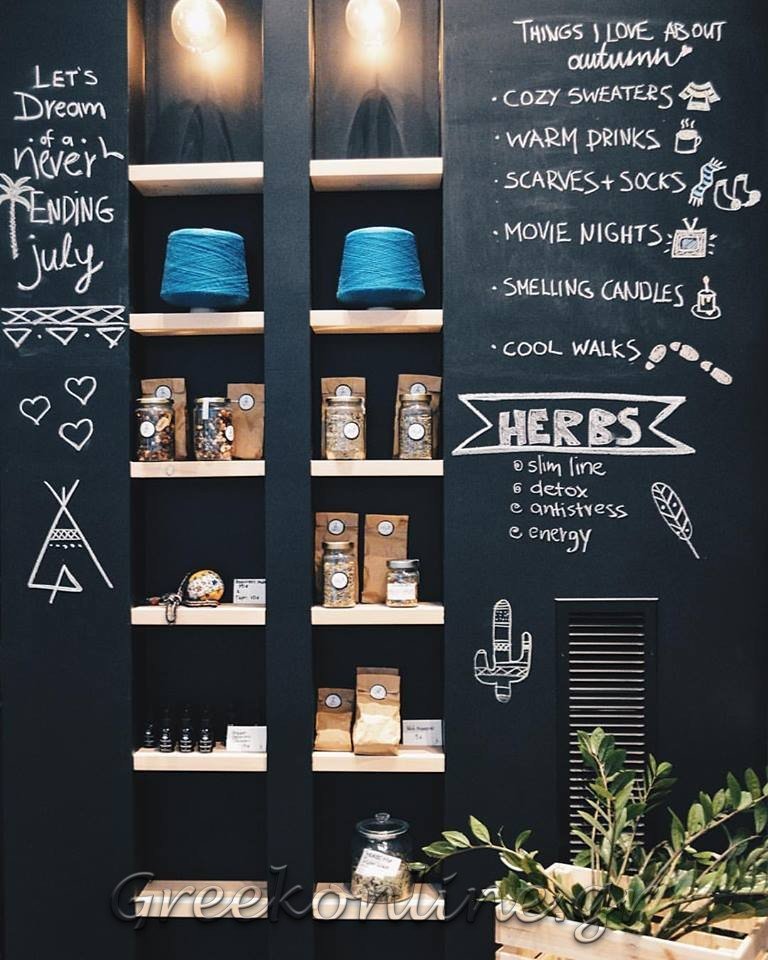 LET'S
Dream
of a
never
ENDING
july
THINGS I LOVE ABOUT
autumn
· COZY SWEATERS
· WARM DRINKS
· SCARVES + SOCKS
· MOVIE NIGHTS
· SMELLING CANDLES
· COOL WALKS
HERBS
slim line
detox
antistress
energy
Greekonline.gr